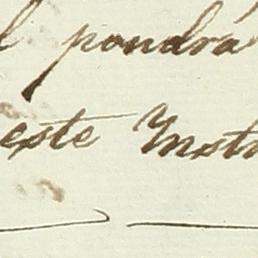 l pondrá
este Insta